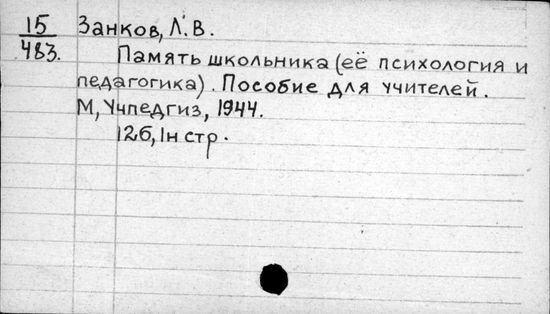 15 Занков, Л. В.
483. Память школьника (её психология и
педагогика). Пособие для учителей.
М, Учпедгиз, 1944.
126, 1н стр.